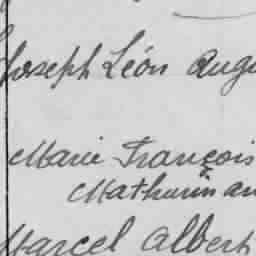 Joseph Léon Augu
Marie François
Mathurin an
Marcel Albert